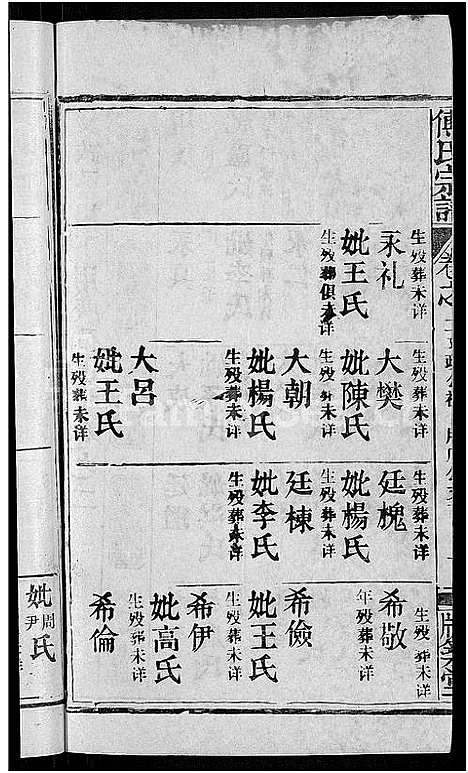 傅氏宗譜
永礼
生殁葬未详
妣王氏
生殁葬俱未详
大樊
生殁葬未详
妣陳氏
生殁葬未详
大朝
妣楊氏
生殁葬未详
大呂
妣王氏
生殁葬未详
廷槐
生殁葬未详
妣楊氏
生殁葬未详
廷棟
妣李氏
生殁葬未详
希敬
生殁葬未详
年殁葬未详
希儉
妣王氏
生殁葬未详
希伊
妣高氏
生殁葬未详
希倫
妣周尹氏